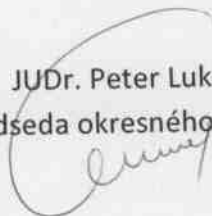 JUDr. Peter Luk
dseda okresného